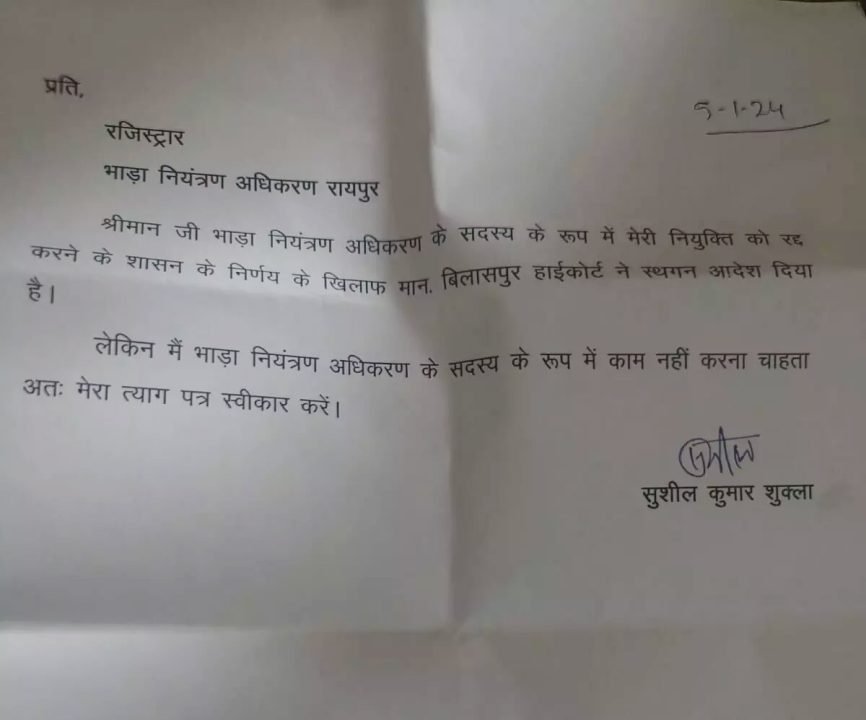 प्रति,
5-1-24
रजिस्ट्रार
भाड़ा नियंत्रण अधिकरण रायपुर
श्रीमान जी भाड़ा नियंत्रण अधिकरण के सदस्य के रूप में मेरी नियुक्ति को रद्द
करने के शासन के निर्णय के खिलाफ मान. बिलासपुर हाईकोर्ट ने स्थगन आदेश दिया
है।
लेकिन मैं भाड़ा नियंत्रण अधिकरण के सदस्य के रूप में काम नहीं करना चाहता
अतः मेरा त्याग पत्र स्वीकार करें।
सुशील कुमार शुक्ला